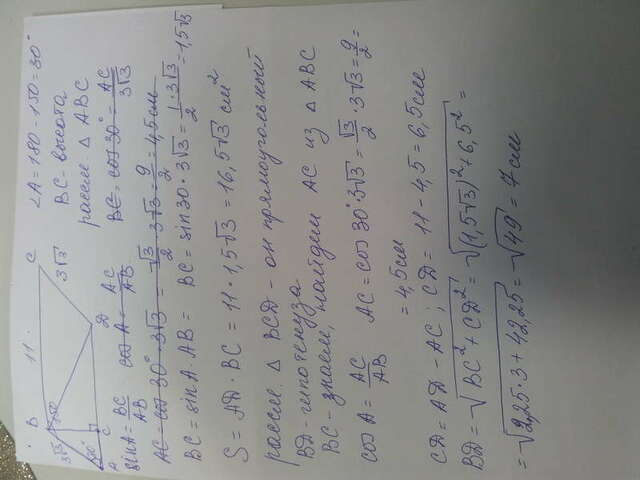 B 11 C
3√3
3√3
150°
30°
A C D
∠A = 180 - 150 = 30°
BC - высота
рассм △ ABC
sinA = BC/AB cos A = AC/AB BC = cos 30° = AC/3√3
AC = cos 30° · 3√3 = √3/2 · 3√3 = 9/2 = 4,5 см
BC = sin A · AB = BC = sin 30 · 3√3 = 1/2 · 3√3 = 1,5√3
S = AD · BC = 11 · 1,5√3 = 16,5√3 см²
рассм. △ BCD - он прямоугольный
BD - гипотенуза
BC - знаем, найдем AC из △ ABC
cos A = AC/AB AC = cos 30° · 3√3 = √3/2 · 3√3 = 9/2 =
= 4,5 см
CD = AD - AC ; CD = 11 - 4,5 = 6,5 см
BD = √BC² + CD² = √(1,5√3)² + 6,5² =
= √2,25 · 3 + 42,25 = √49 = 7 см